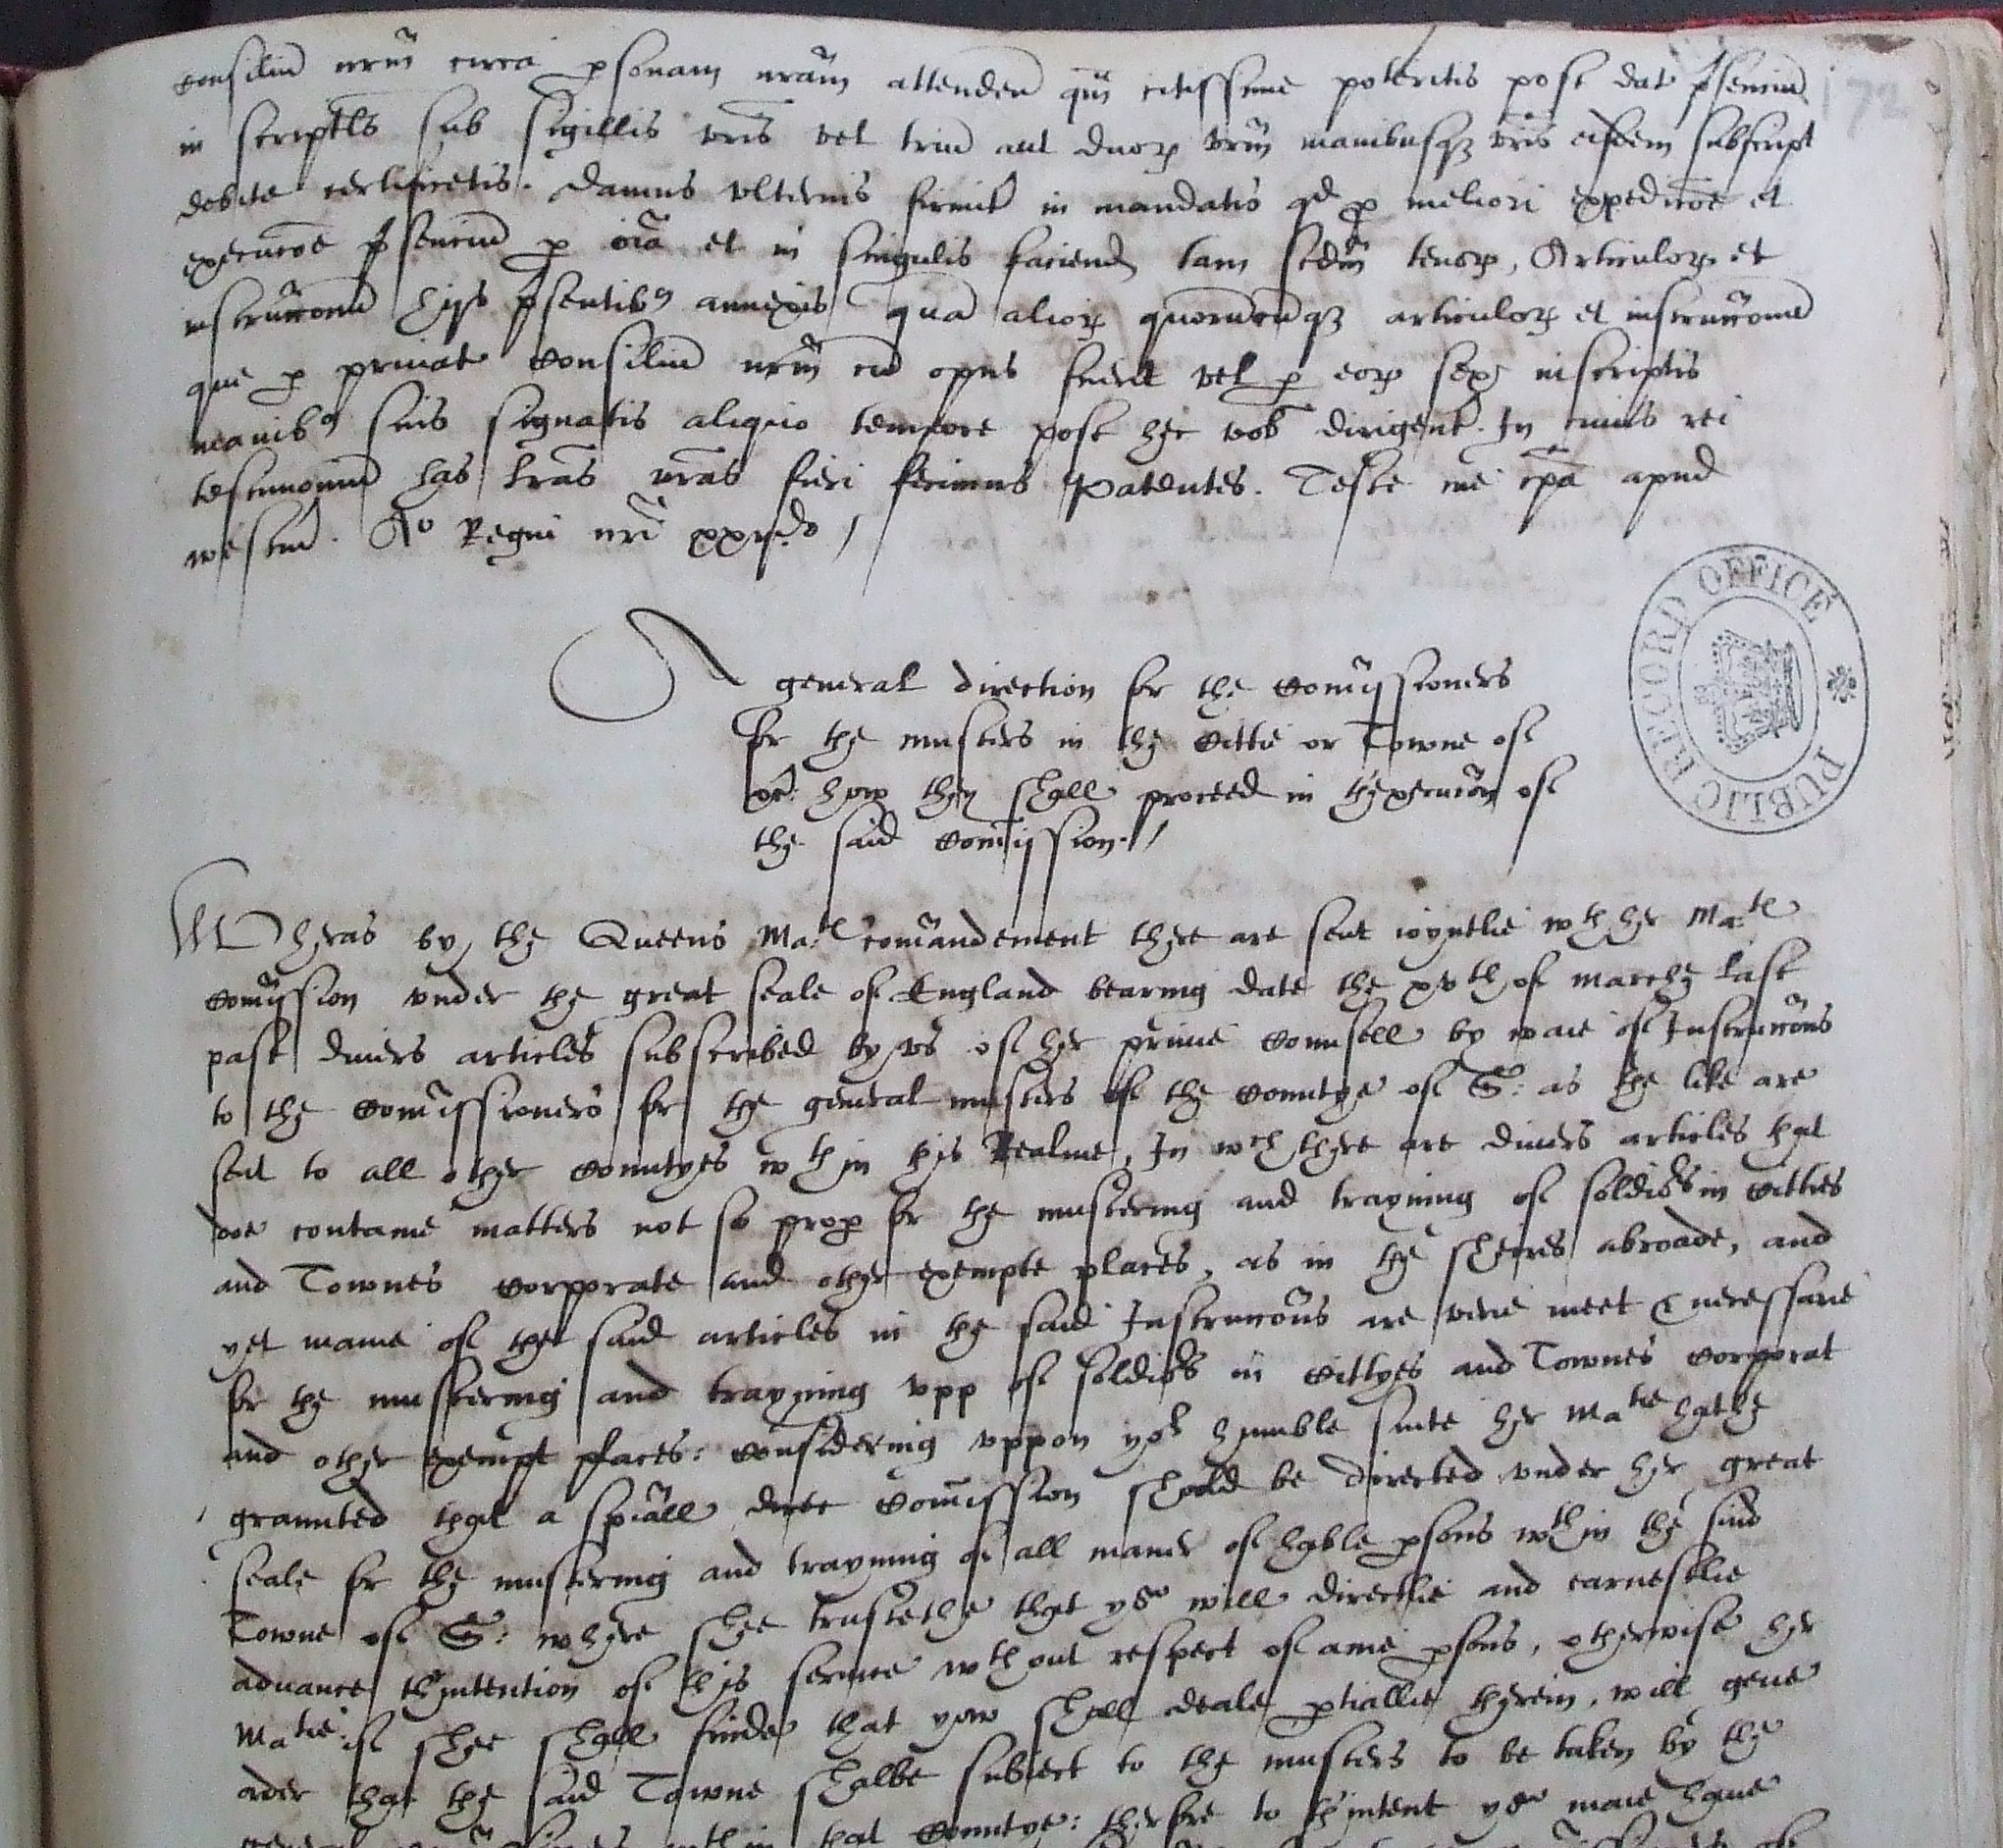 consiliū nr̄m circa p̱sonam nrām attenden̄ qm̄ citissime poteritis post dat p̄sentiū 172
in scriptis sub sigillis vrīs vel triū aut duoꝝ vrm̄ manibusqꝫ vrīs eisdem subscript
debite certificetis. Damus vlterius firmit̄ in mandatis qd̄ ꝓ meliori expedicōe et
execucōe p̄sentiū p̱ oīa et in singulis faciend tam scdm̄ tenoꝝ, Articuloꝝ et
instruccōnū hijs p̄sentibꝰ annexis quā alioꝝ quorūcūqꝫ articuloꝝ et instruccōnū
que p̱ privat Consiliū nrm̄ cū opus fuerit vel p̱ eoꝝ sex inscriptis
manibꝰ suis signatis aliquo tempore post hec vob̄ dirigent. In cuius rei
testimoniū has lrās nrās fieri fecimus Patentes. Teste me ip̄a apud
westm̄. Ao Regni nrī xxijdo
A general direction for the Com̄issioners
for the musters in the Cittie or Towne of
how they shall proceed in thexecucōn of
the said Com̄ission.
PUBLIC RECORD OFFICE
Wheras by the Queens Matis com̄andement there are sent ioyntlie wth her Mats
Com̄ission vnder the great seale of England bearing date the xvth of marche last
past divers articles subscribed by vs of her privie Counsell by waie of Instruccōns
to the Com̄issioners for the general musters of the Countye of S: as the like are
sent to all other Countyes wthin this Realme, In wch there are divers articles that
doe containe matters not so prop̱ for the mustering and trayning of soldiors in Citties
and Townes Corporate and other exempte places, as in the sheires abroade, and
yet manie of the said articles in the said Instruccōns are verie meet & necessarie
for the mustering and trayning vpp of soldiors in Cittyes and Townes Corporat
and other exempt places: Considering vppon yor humble suite her Matie hathe
graunted that a spīall Com̄ission shold be directed vnder her great
seale for the mustering and trayning of all maner of hable p̱sons wthin the said
Towne of S: where shee trustethe that yow will directlie and earnestlie
advance thintention of this service wthout respect of anie p̱sons, otherwise her
Matie if shee shall finde that yow shall deale p̱tiallie therein, will geve
order that the said Towne shalbe subiect to the musters to be taken by the
wthin that Countye: therfore to thintent yow maie have